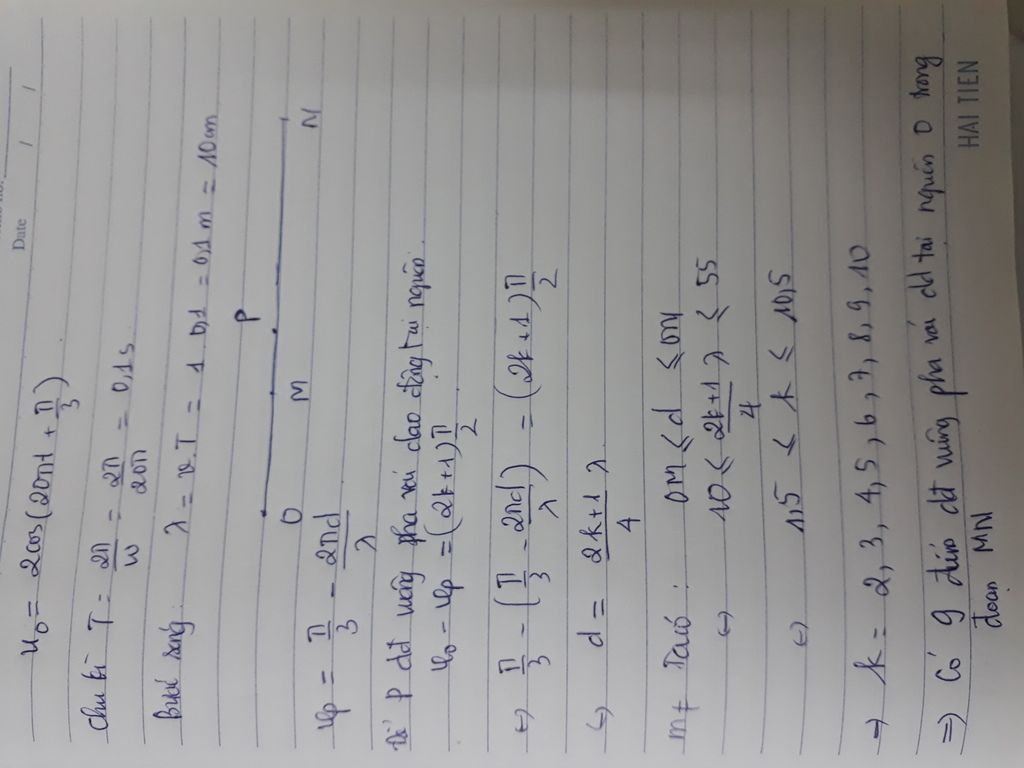 Date / /
u₀ = 2cos(20πt + π/3)
Chu kì T = 2π/ω = 2π/20π = 0,1s
Bước sóng: λ = v.T = 1.0,1 = 0,1m = 10cm
O M P N
φp = π/3 - 2πd/λ
Để P dđ vuông pha với dao động tại nguồn.
φ₀ - φp = (2k+1)π/2
⇔ π/3 - (π/3 - 2πd/λ) = (2k+1)π/2
⇔ d = (2k+1)/4 λ
mà Ta có: OM ≤ d ≤ ON
⇔ 10 ≤ (2k+1)/4 λ ≤ 55
⇔ 1,5 ≤ k ≤ 10,5
→ k = 2, 3, 4, 5, 6, 7, 8, 9, 10
⇒ Có 9 điểm dđ vuông pha với dđ tại nguồn O trong
đoạn MN
HAI TIEN